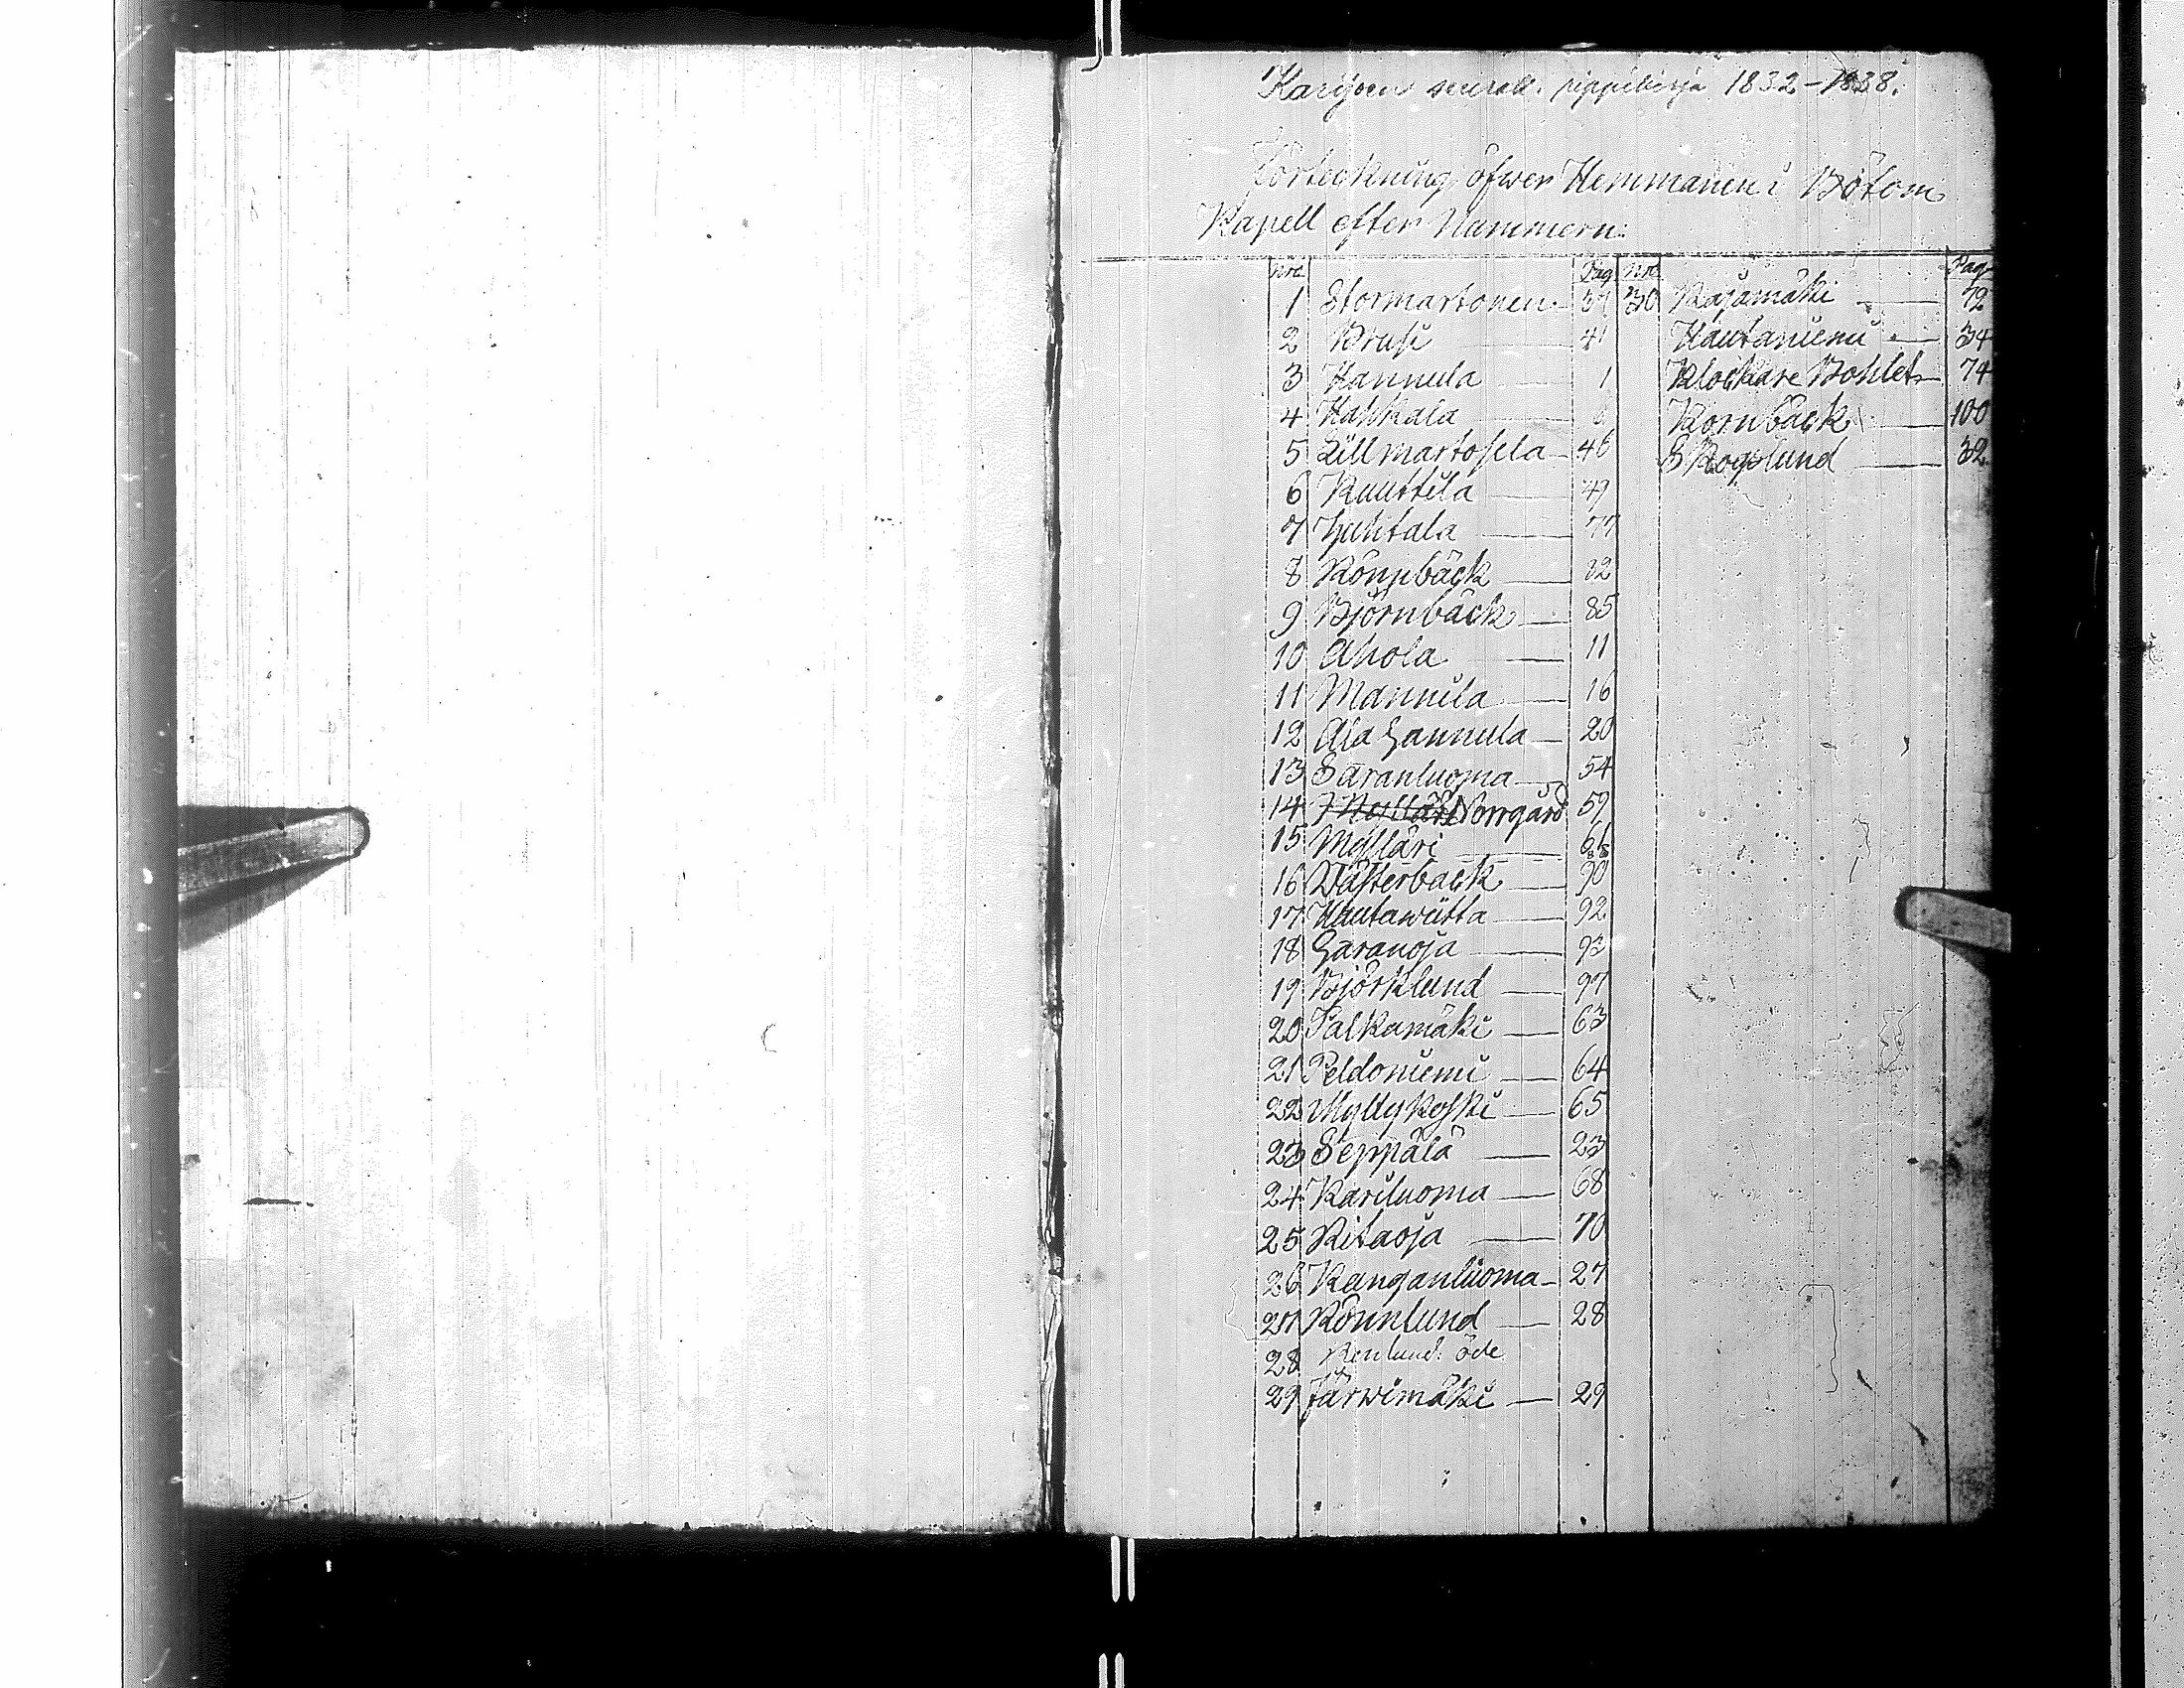 Karijoen seurak. rippikirja 1832-1838.
Förteckning öfwer Hemmanen i Bötom
Kapell efter Nummern:
Nro Pag. Nro Pag.
1 Stormartonen 37
2 Brusi 41
3 Hannula 1
4 Hahkala
5 Lillmartosela 46
6 Knuttila 49
7 Juhtala 77
8 Rönnbäck
9 Björnbäck 85
10 Ahola 11
11 Mannila 16
12 Ala Hannula 20
13 Saranluoma 54
14 Norrgård 59
15 Mylläri 61
16 Wästerback 90
17 Hautawiitta 92
18 Saranoja 93
19 Björklund 97
20 Palkamäki 63
21 Peldoniemi 64
22 Myllykoski 65
23 Seppälä 23
24 Kariluoma 68
25 Kitaoja 70
26 Kanganluoma 27
27 Rönnlund 28
28 Renlund öde
29 Järwimäki 29
30 Rajamäki 72
Hautaniemi 34
Klockare Bohlet 74
Kornbäck 100
Skogslund 32